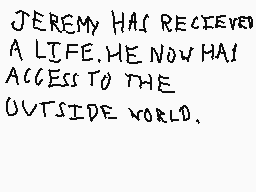 JEREMY HAS RECIEVED
A LIFE. HE NOW HAS
ACCESS TO THE
OUTSIDE WORLD.